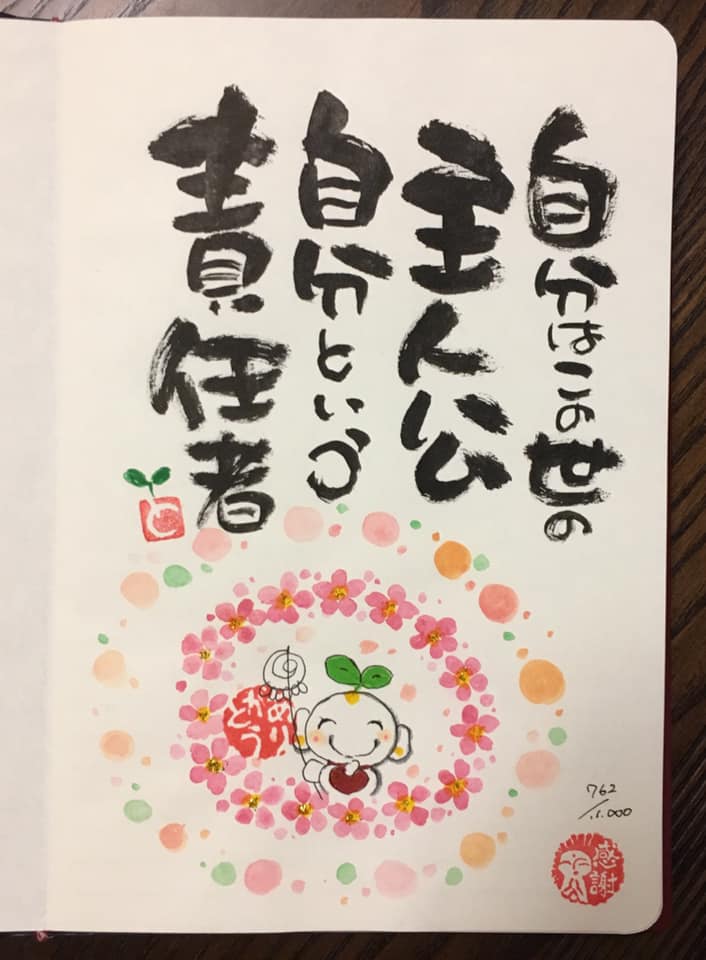 自分はこの世の
主人公
自分という
責任者
ありがとう
762
感謝